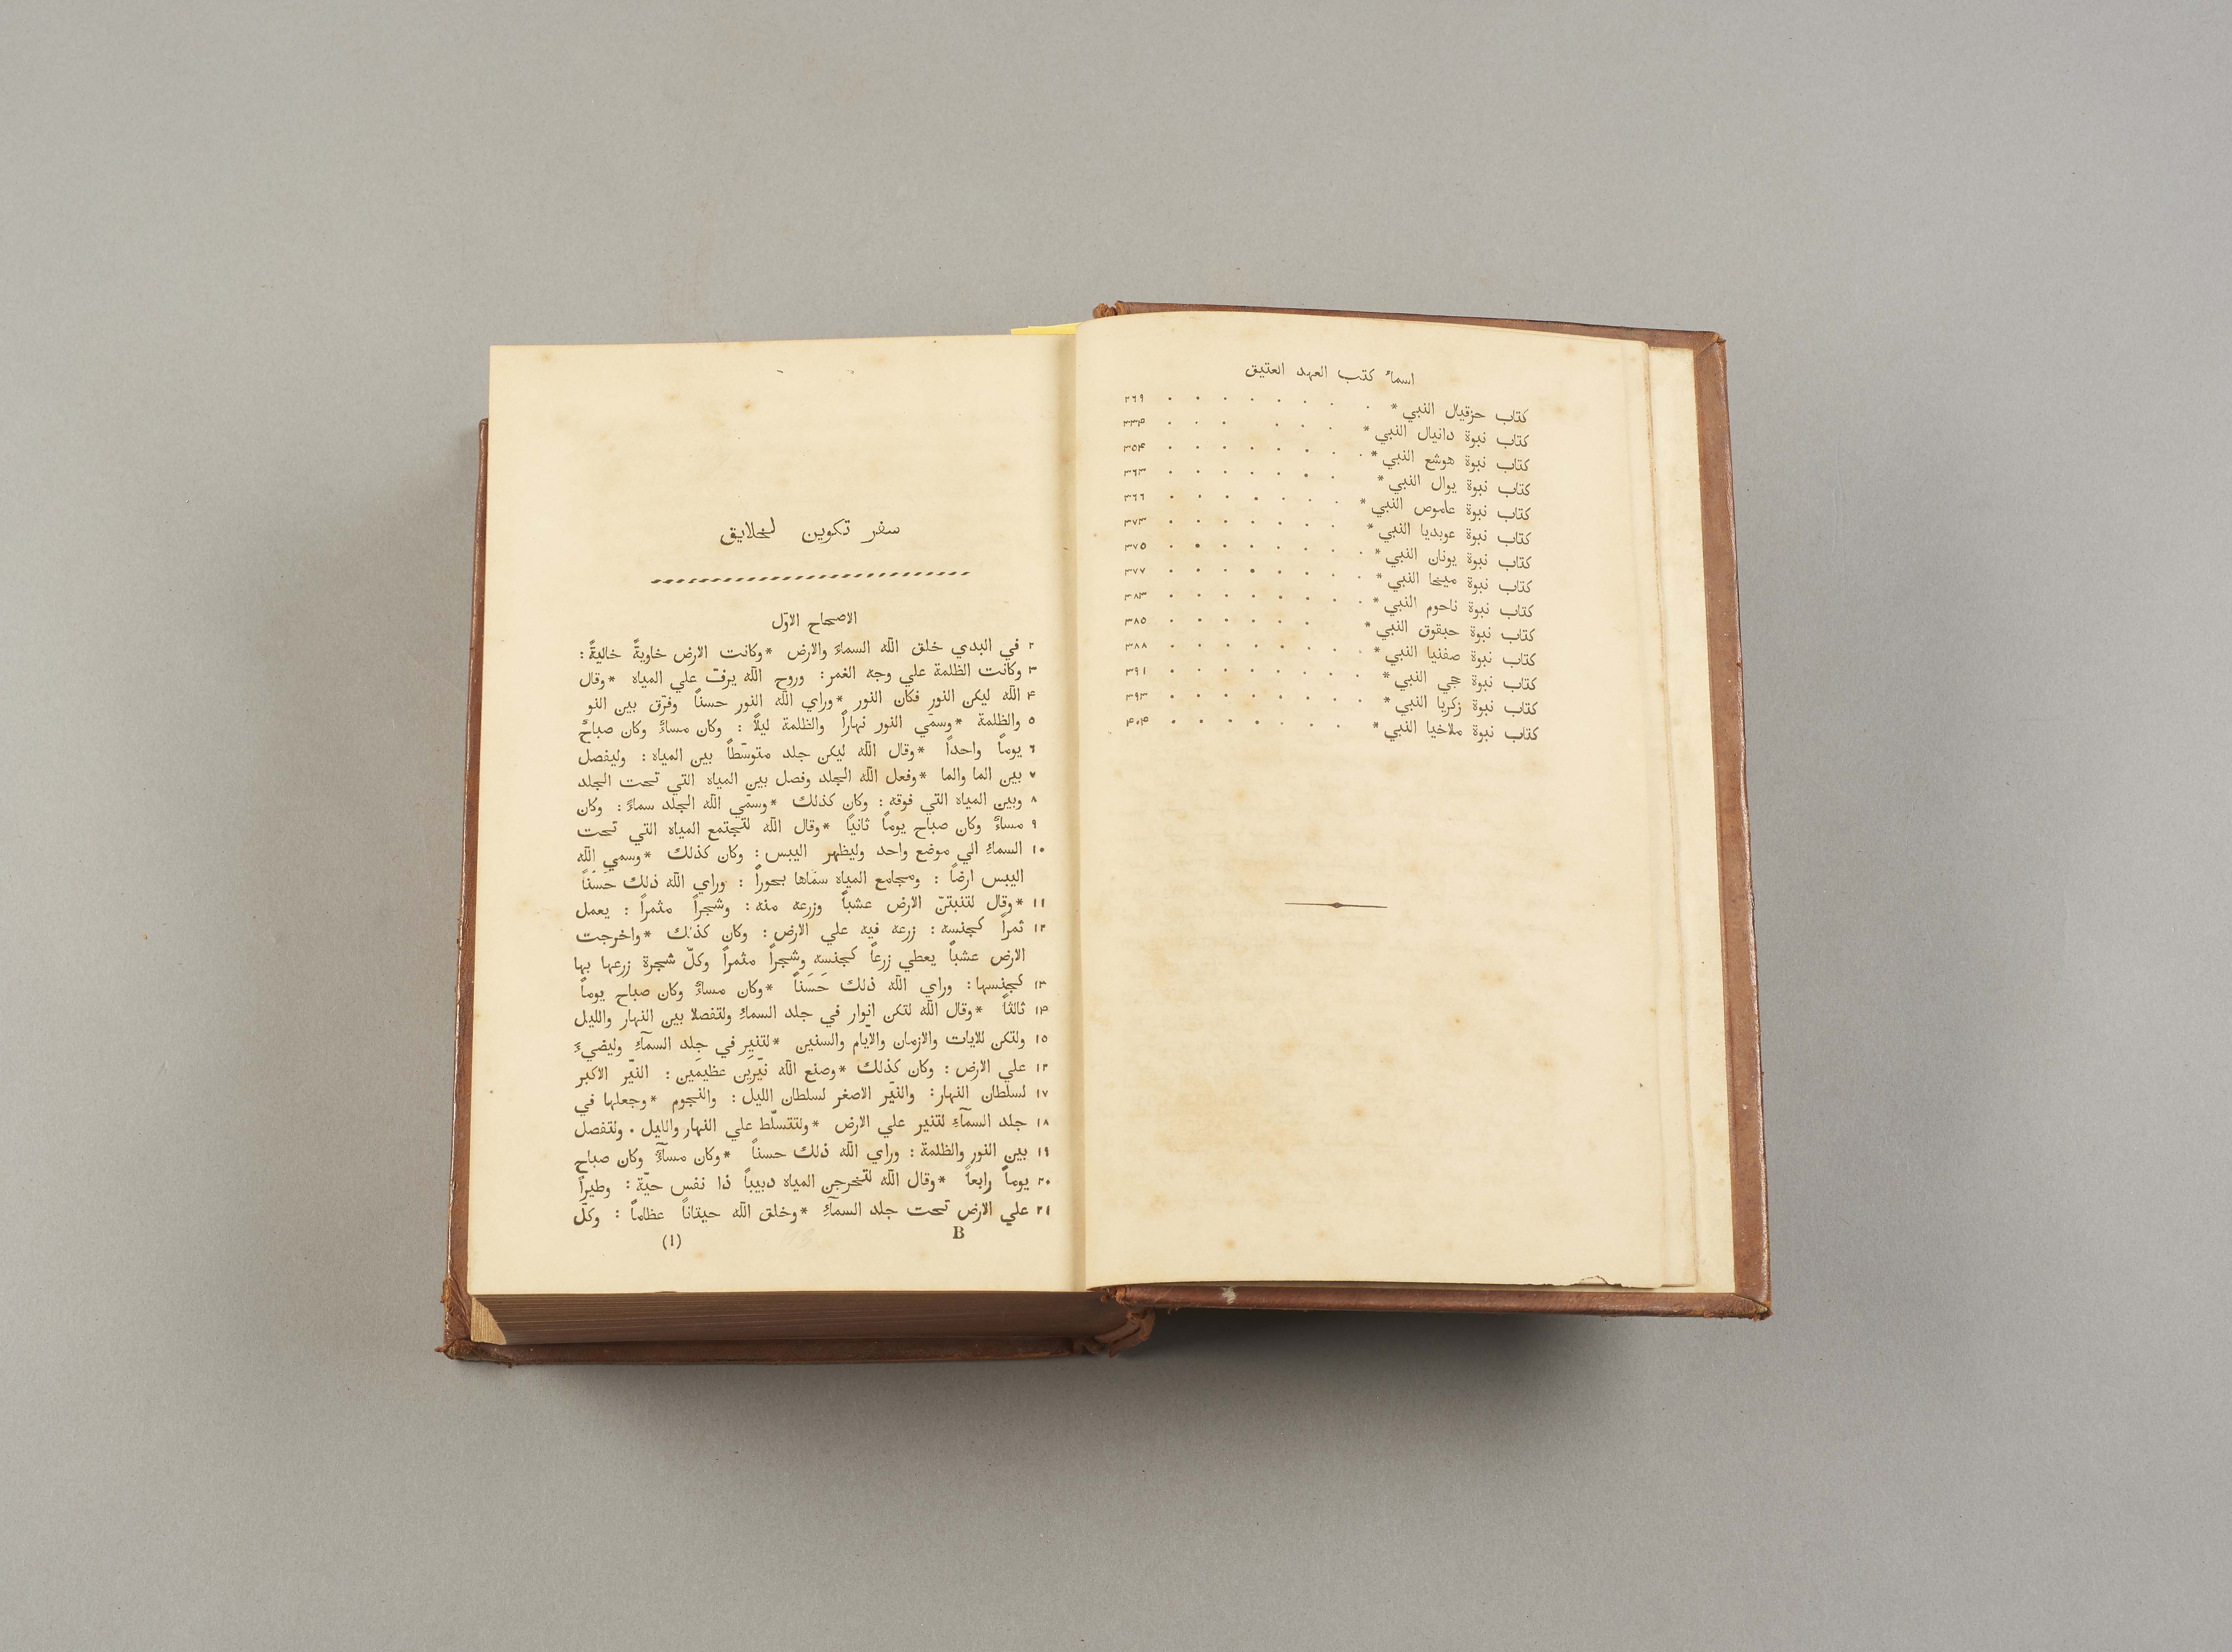 اسماءُ كتب العهد العتيق
كتاب حزقيال النبي* . . . . . . . . ٢٦٩
كتاب نبوة دانيال النبي* . . . . . . . ٣٣٤
كتاب نبوة هوشع النبي* . . . . . . . . ٣٥٤
كتاب نبوة يوال النبي* . . . . . . . ٣٦٣
كتاب نبوة عاموص النبي* . . . . . . . ٣٦٦
كتاب نبوة عوبديا النبي* . . . . . . . ٣٧٣
كتاب نبوة يونان النبي* . . . . . . . . ٣٧٥
كتاب نبوة ميخا النبي* . . . . . . . . ٣٧٧
كتاب نبوة ناحوم النبي* . . . . . . . . ٣٨٣
كتاب نبوة حبقوق النبي* . . . . . . ٣٨٥
كتاب نبوة صفنيا النبي* . . . . . . . . ٣٨٨
كتاب نبوة حجي النبي* . . . . . . . . ٣٩١
كتاب نبوة زكريا النبي* . . . . . . . . ٣٩٣
كتاب نبوة ملاخيا النبي* . . . . . . . ٤٠٤
سفر تكوين الخلايق
الاصحاح الاوّل
٢ في البدي خلق الله السماءَ والارض *وكانت الارض خاويةً خاليةً :
٣ وكانت الظلمة علي وجه الغمر : وروح الله يرفّ علي المياه *وقال
٤ الله ليكن النور فكان النور *وراي الله النور حسناً وفرّق بين النو
٥ والظلمة *وسمّي النور نهاراً والظلمة ليلاً : وكان مساءً وكان صباحٌ
٦ يوماً واحداً *وقال الله ليكن جلد متوسّطاً بين المياه : وليفصل
٧ بين الما والما *وفعل الله الجلد وفصل بين المياه التي تحت الجلد
٨ وبين المياه التي فوقه : وكان كذلك *وسمّي الله الجلد سماءً : وكان
٩ مساءً وكان صباح يوماً ثانياً *وقال الله لتجتمع المياه التي تحت
١٠ السماءِ الي موضع واحد وليظهر اليبس : وكان كذلك *وسمي الله
اليبس ارضاً : ومجامع المياه سمّاها بحوراً : وراي الله ذلك حَسَناً
١١ *وقال لتنبتنّ الارض عشباً وزرعه منه : وشجراً مثمراً : يعمل
١٢ ثمراً كجنسه : زرعه فيه علي الارض : وكان كذلك *واخرجت
الارض عشباً يعطي زرعاً كجنسه وشجراً مثمراً وكلّ شجرة زرعها بها
١٣ كجنسها : وراي الله ذلك حَسَناً *وكان مساءً وكان صباح يوماً
١٤ ثالثاً *وقال الله لتكن انوار في جلد السماءِ ولتفصلا بين النهار والليل
١٥ ولتكن للايات والازمان والايّام والسنين *لتنير في جلد السمآءِ وليضيءَ
١٦ علي الارض : وكان كذلك *وصنع الله نيّرَين عظيمَين : النيّر الاكبر
١٧ لسلطان النهار : والنيّر الاصغر لسلطان الليل : والنجوم *وجعلها في
١٨ جلد السمآءِ لتنير علي الارض *ولتتسلّط علي النهار والليل . ولتفصل
١٩ بين النور والظلمة : وراي الله ذلك حسناً *وكان مسآءً وكان صباح
٢٠ يوماً رابعاً *وقال الله لتخرجن المياه دبيباً ذا نفس حيّة : وطيراً
٢١ علي الارض تحت جلد السمآءِ *وخلق الله حيتاناً عظاماً : وكلّ
B
(1)